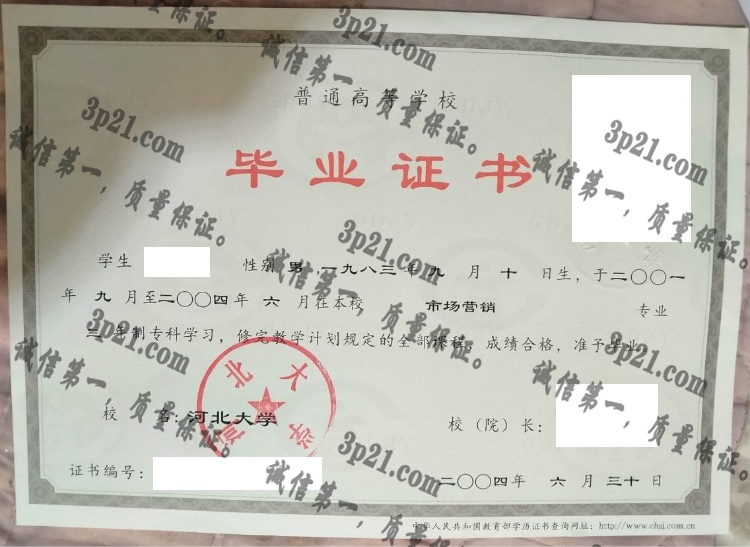 普通高等学校
毕业证书
学生 性别 男 ,一九八三年 九 月 十 日生，于二〇〇一
年 九 月至二〇〇四年 六 月在本校 市场营销 专业
三 年制专科学习，修完教学计划规定的全部课程，成绩合格，准予毕业。
校 名：河北大学
校（院）长：
证书编号：
二〇〇四年 六 月三十日
中华人民共和国教育部学历证书查询网址：http://www.chsi.com.cn
河北大学
3p21.com
诚信第一，质量保证。
3p21.com
诚信第一，质量保证。
3p21.com
诚信第一，质量保证。
3p21.com
诚信第一，质量保证。
3p21.com
诚信第一，质量保证。
3p21.com
诚信第一，质量保证。
3p21.com
诚信第一，质量保证。
3p21.com
诚信第一，质量保证。